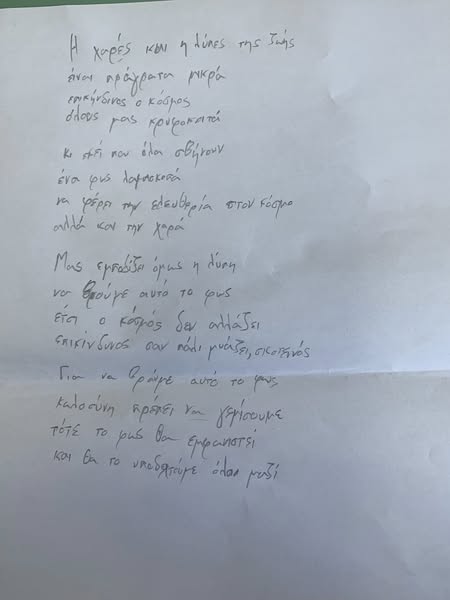 Η χαρές και η λύπες της ζωής
είναι πράγματα μικρά
επικήνδινος ο κόσμος
όλους μας κρυφοκοιτά
κι εκεί που όλα σβήνουν
ένα φως λαμποκοπά
να φέρει την ελευθερία στον κόσμο
αλλά και την χαρά
Μας εμποδίζει όμως η λύπη
να βρούμε αυτό το φως
έτσι ο κόσμος δεν αλλάζει
επικίνδυνος σαν πάλι μοιάζει, σκοτεινός
Για να βρούμε αυτό το φως
καλοσύνη πρέπει να γεμίσουμε
τότε το φως θα εμφανιστεί
και θα το υποδεχτούμε όλοι μαζί